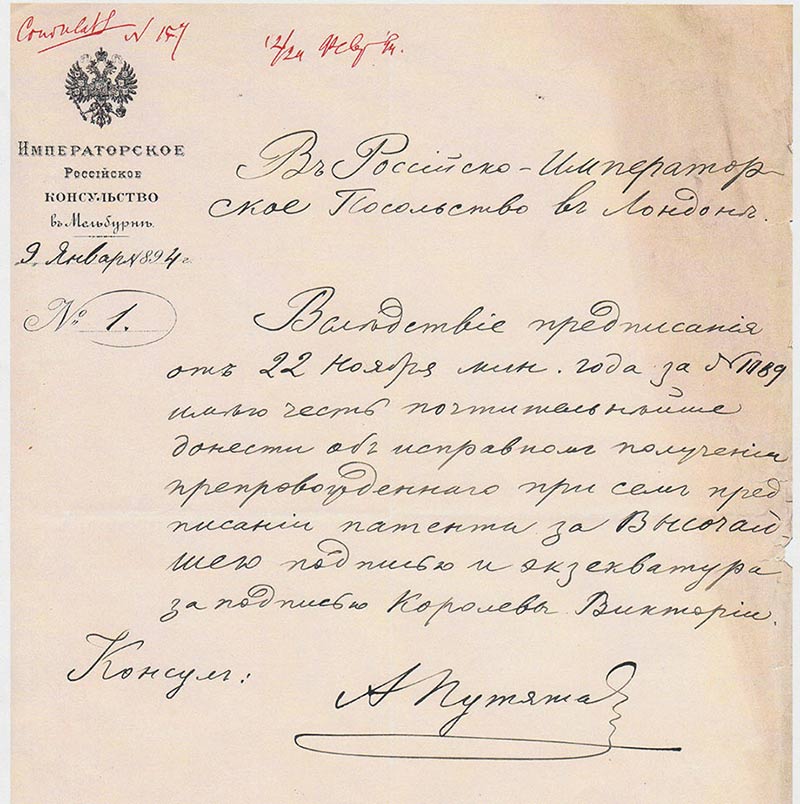 Consulat
N 157
ИМПЕРАТОРСКОЕ
Российское
КОНСУЛЬСТВО
въ Мельбурнѣ.
9 Января 1894 г.
№ 1.
Въ Россійско-Император-
ское Посольство въ Лондонѣ.
Вслѣдствіе предписанія
отъ 22 Ноября мин. года за № 1189
имѣю честь почтительнѣйше
донести объ исправномъ полученіи
препровожденнаго при семъ пред-
писаніи патента за Высочай-
шею подписью и экзекватура
за подписью Королевы Викторіи.
Консулъ:
А Путята